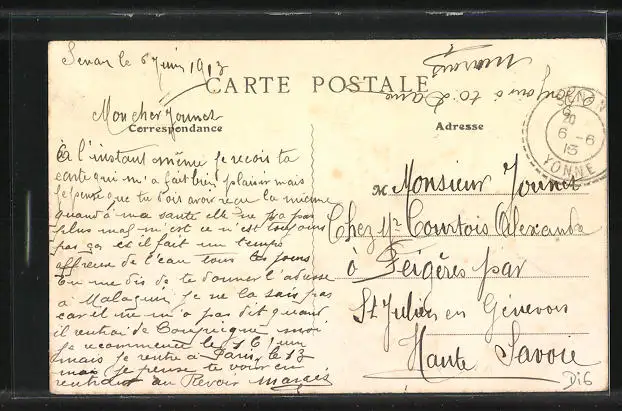 Senan le 6 Juin 1913
CARTE POSTALE
Bonjour à ta Dame
Marcus
Mon cher Jounet
Correspondance
Adresse
6-6
13
YONNE
à l'instant même je recois ta
carte qui m'a fait bien plaisir mais
je pense que tu dois avoir reçu la mienne
quand à ma santé elle ne va pas
plus mal n'est ce n'est toujours
pas ça et il fait un temps
affreux de l'eau tous les jours
tu me dis de te donner l'adresse
à Malaquin je ne la sais pas
car il ne m'a pas dit quand
il rentrai de moi
je recommence le 16
mais je rentre à Paris le 13
mais je pense te voir en
rentrant au Revoir
M Monsieur Jounet
Chez Mr Courtois Alexandre
à Feigères par
St Julien en Genevois
Haute Savoie
Di6